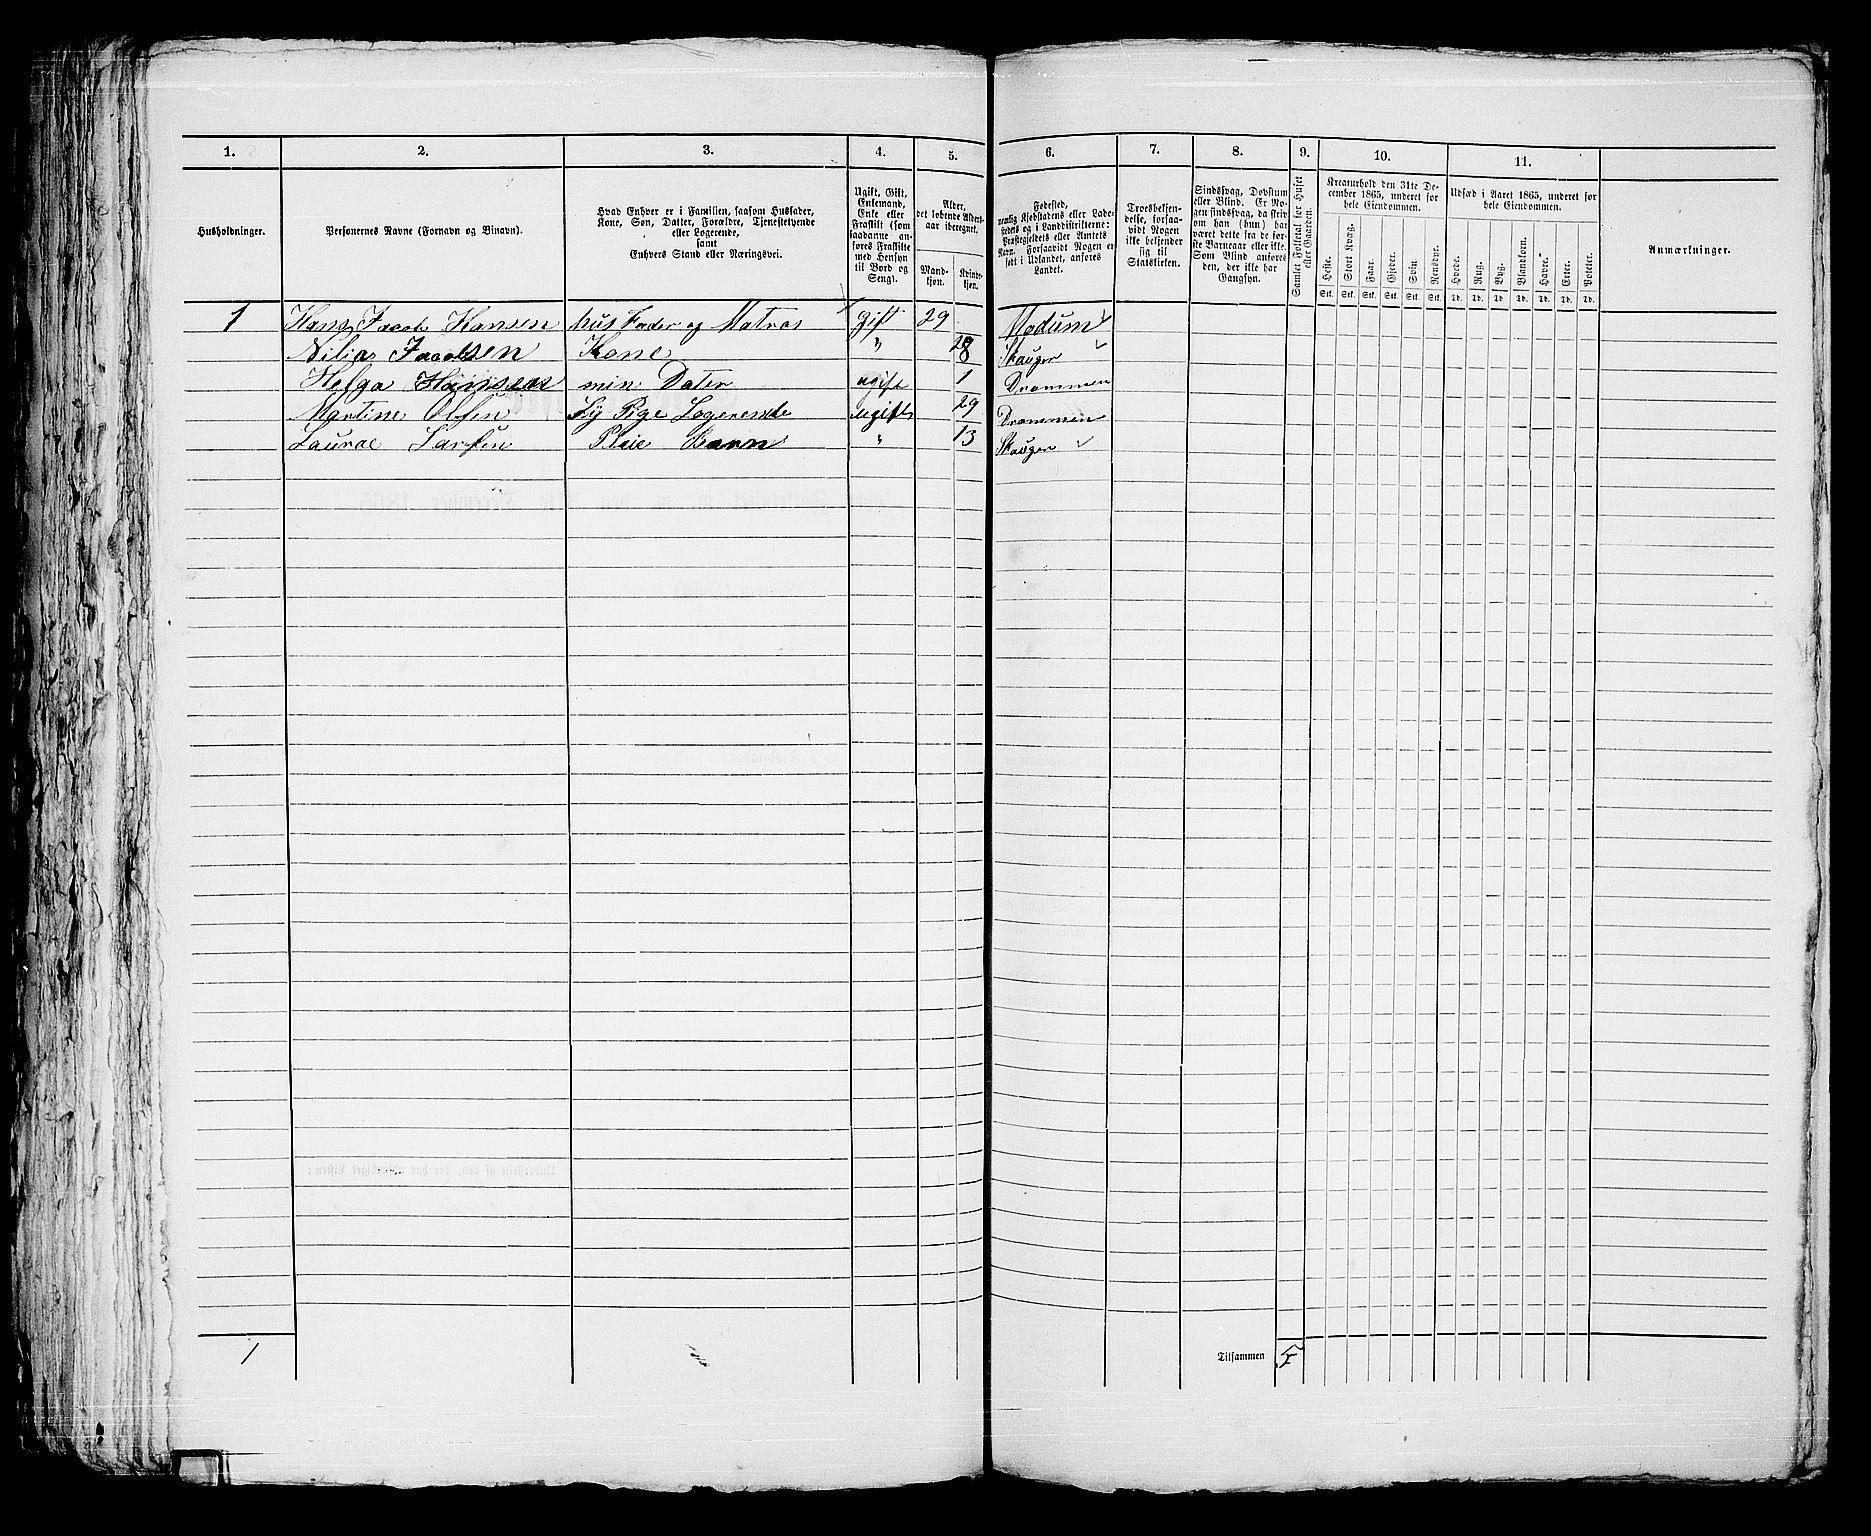 1. 2. 3. 4. 5. 6. 7. 8. 9. 10. 11.
Husholdninger.
Personernes Navne (Fornavn og Binavn).
Hvad Enhver er i Familien, saasom Husfader,
Kone, Søn, Datter, Forældre, Tjenestetyende
eller Logerende,
samt
Enhvers Stand eller Næringsvei.
Ugift, Gift,
Enkemand,
Enke eller
Fraskilt (som
saadanne an-
føres Fraskilte
med Hensyn
til Bord og
Seng).
Alder,
det løbende Alders-
aar iberegnet.
Mand-
kjøn.
Kvinde-
kjøn.
Fødested,
nemlig Kjøbstadens eller Lade-
stedens og i Landdistrikterne:
Præstegjeldets eller Amtets
Navn. Forsaavidt Nogen er
født i Udlandet, anføres
Landet.
Troesbekjen-
delse, forsaa-
vidt Nogen
ikke bekjender
sig til
Statskirken.
Sindssvag, Døvstum
eller Blind. Er No-
gen sindssvag, da skriv
om han (hun) har
været dette fra de før-
ste Barneaar eller ikke.
Som Blind anføres
den, der ikke har
Gangsyn.
Samlet Folketal for Huset
eller Gaarden.
Kreaturhold den 31te De-
cember 1865, underet for
hele Eiendommen.
Heste. Stort Kvæg. Faar. Gjeder. Svin. Rensdyr.
Stk. Stk. Stk. Stk. Stk. Stk.
Udsæd i Aaret 1865, underet for
hele Eiendommen.
Hvede. Rug. Byg. Blandkorn. Havre. Erter. Poteter.
Td. Td. Td. Td. Td. Td. Td.
Anmærkninger.
1 Hans Jacob Hansen hus Fader og Matros gift 29 Modum
Kone " Skauger
Helga Hansen min Dater ugift 1 Drammen
Martine Olsen Sy Pige Logerende ugift 29 Drammen
Laurae Larsen Pleie Barn " 13 Skauger
1 Tilsammen 5